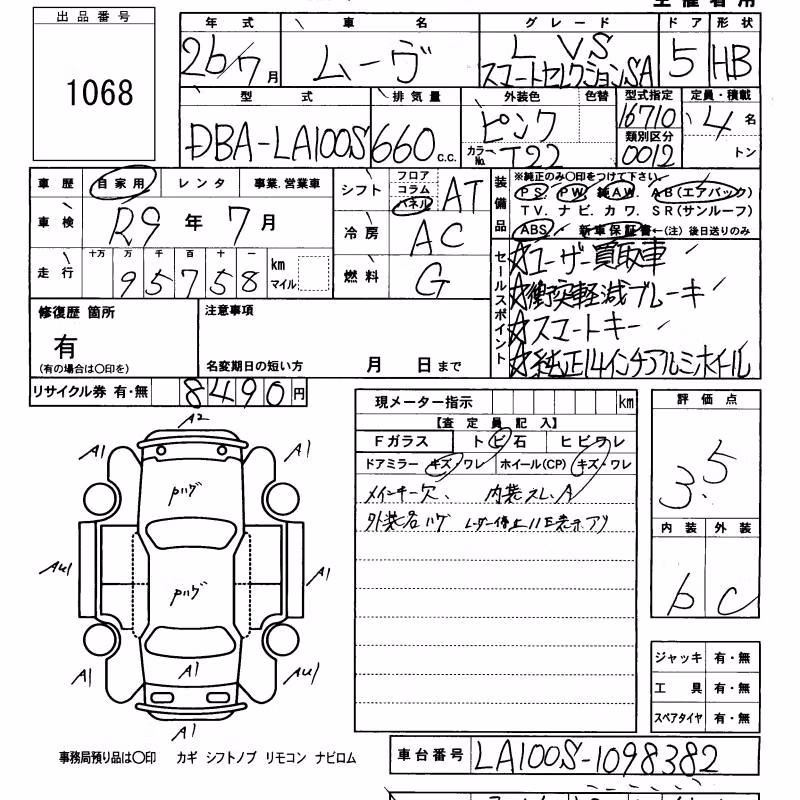 出品番号
1068
年式 車名 グレード ドア 形状
26/7月 ムーヴ L VS スマートセレクションSA 5 HB
型式 排気量 外装色 色替 型式指定 定員・積載
DBA-LA100S 660c.c. ピンク 16710 4名
カラーNo. T22 類別区分 0012 トン
車歴 自家用 レンタ 事業.営業車
シフト フロア コラム パネル AT
装備品 ※純正のみ〇印をつけて下さい。
PS. PW. 純AW. AB(エアバック)
TV. ナビ. カワ. SR(サンルーフ)
ABS 新車保証書←(注)後日送りのみ
車検 R9年7月
冷房 AC
走行 十万 万 千 百 十 一
95758 km マイル
燃料 G
セールスポイント
☆ユーザー買取車
☆衝突軽減ブレーキ
☆スマートキー
☆純正14インチアルミホイール
修復歴 箇所
有
(有の場合は〇印を)
注意事項
名変期日の短い方 月 日まで
リサイクル券 有・無 8490円
現メーター指示 km
【査定員記入】
Fガラス トビ石 ヒビワレ
ドアミラー キズ・ワレ ホイール(CP) キズ・ワレ
メインキー欠、 内装スレ、A
評価点
3.5
内装 外装
b C
A2
A1 A1
AU1 A1
A1 AU1
A1
A1
ジャッキ 有・無
工具 有・無
スペアタイヤ 有・無
事務局預り品は〇印 カギ シフトノブ リモコン ナビロム
車台番号 LA100S-1098382